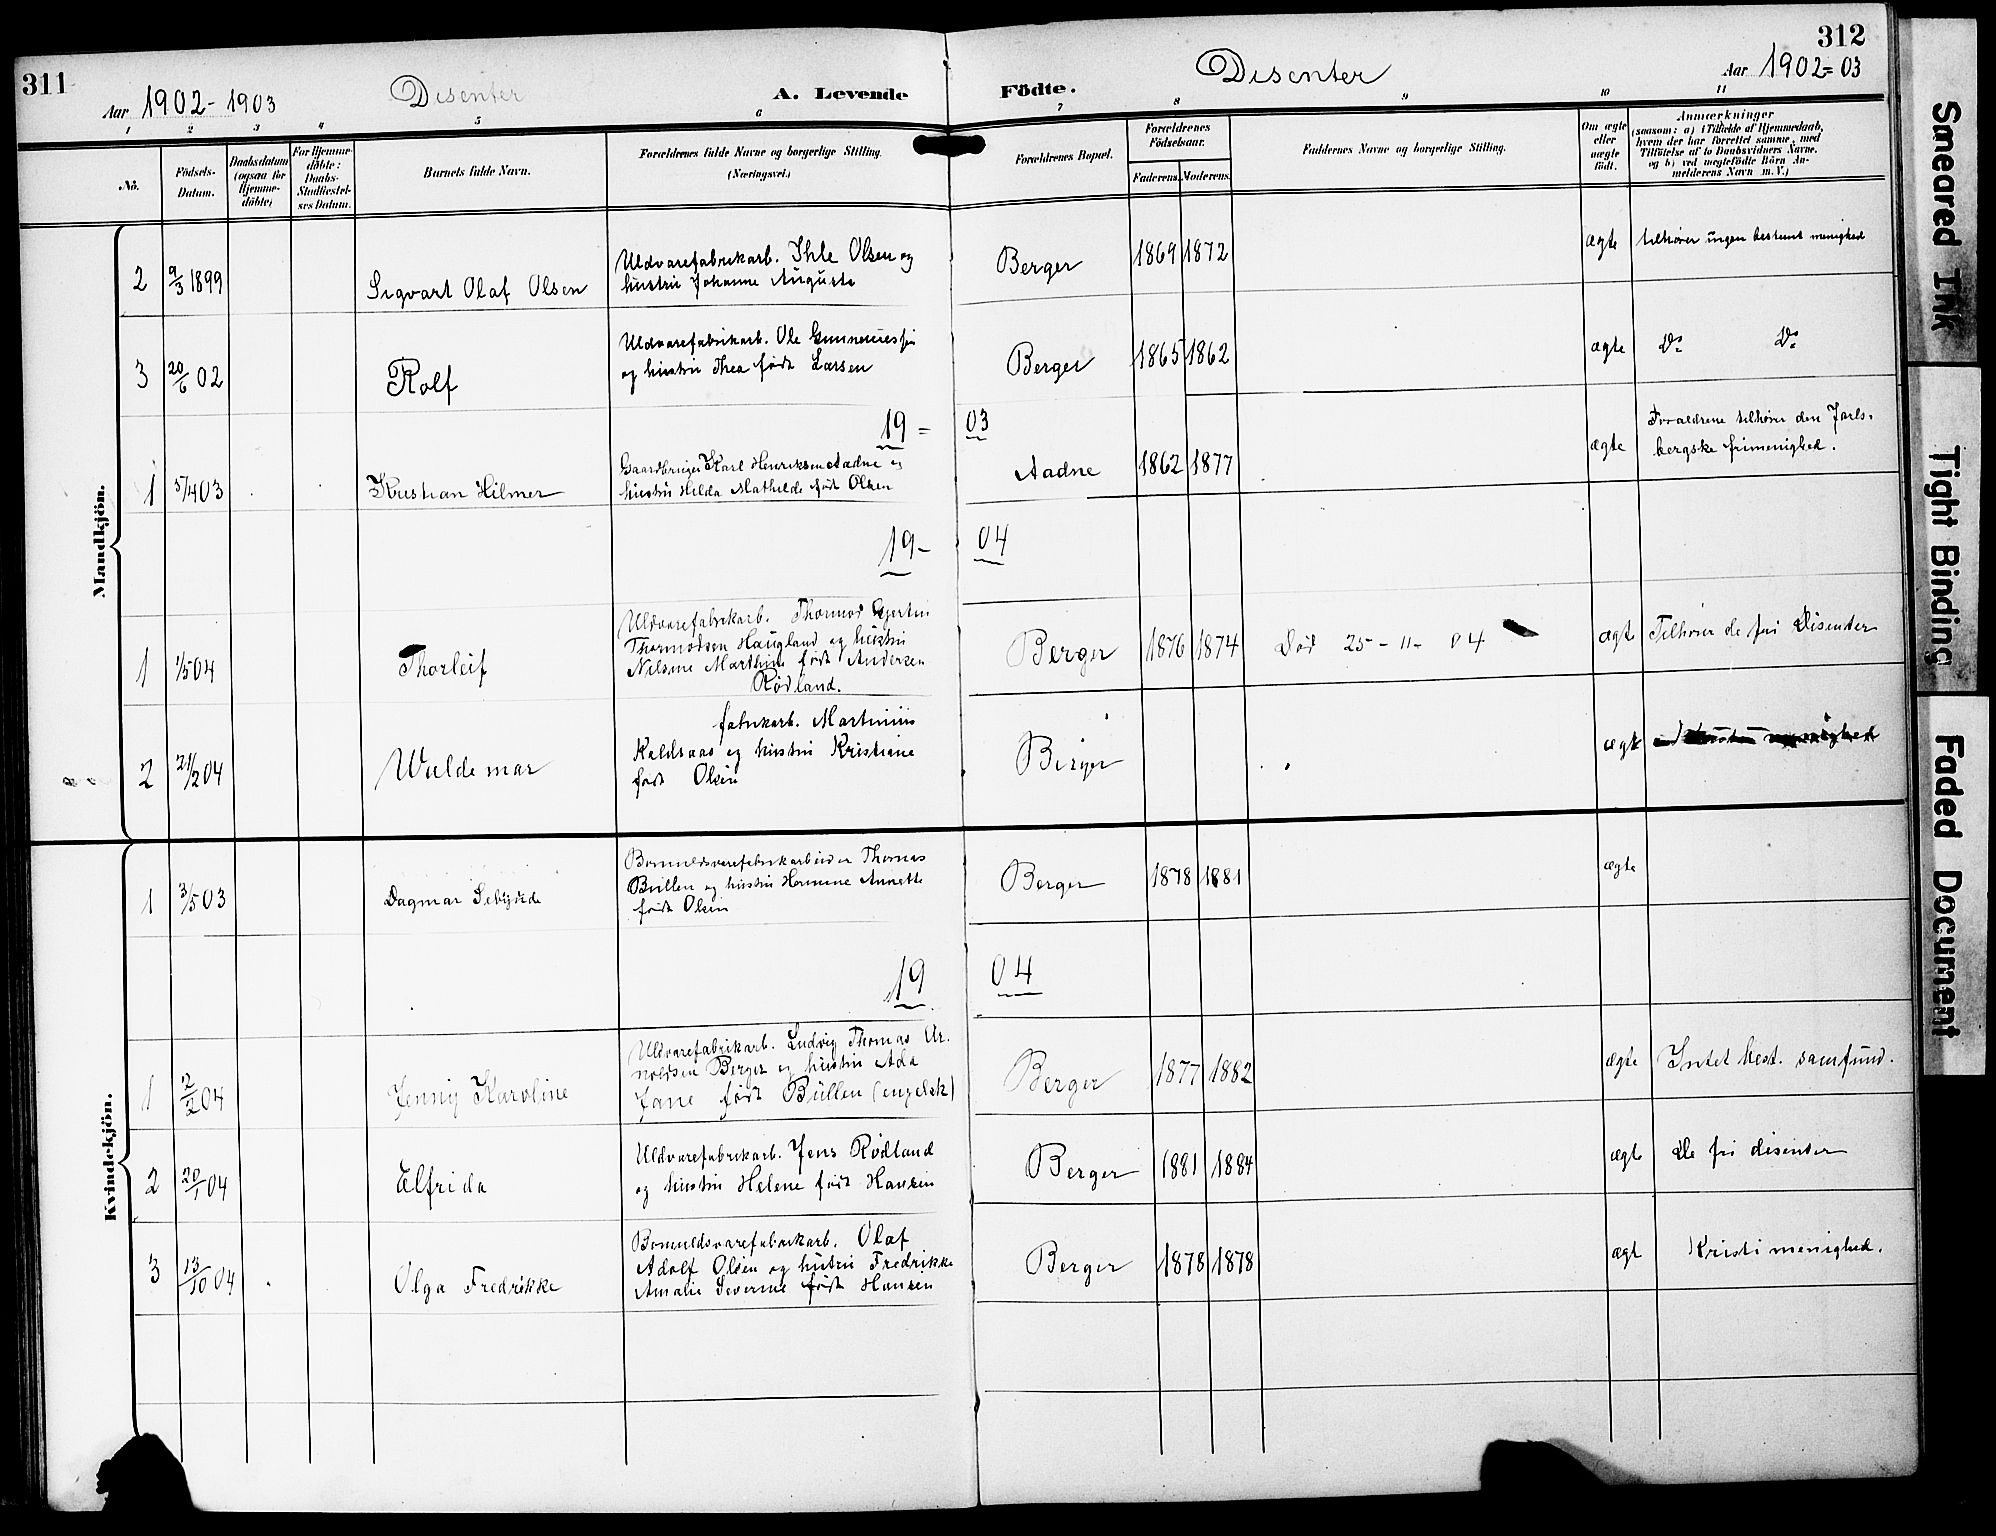 311
Aar 1902-1903
Disenter
A. Levende
Födte.
Disenter
312
Aar 1902=03
1 2 3 4 5 6 7 8 9 10 11
No.
Födsels-
Datum.
Daabsdatum
(ogsaa for
Hjemme-
döbte)
For Hjemme-
döbte:
Daabs-
Stadfæstel-
ses Datum.
Barnets fulde Navn.
Forældrenes fulde Navne og borgerlige Stilling.
(Næringsvei.)
Forældrenes Bopæl.
Forældrenes
Födselsaar.
Faderens. Moderens.
Faddernes Navne og borgerlige Stilling.
Om ægte
eller
uægte
födt.
Anmærkninger
(saasom: a) i Tilfælde af Hjemmedaab,
hvem der har forrettet samme, med
Tilföielse af to Daabsvidners Navne,
og b) ved uægtefödte Börn An-
melderens Navn m. V.)
Mandkjön.
2 9/3 1899 Sigvart Olaf Olsen
Uldvarefabrikarb. Ihle Olsen og
hustru Johanne Auguste
Berger 1869 1872 ægte tilhører ingen bestemt menighed
3 20/6 02 Rolf
Uldvarefabrikarb. Ole
og hustru Thea født Larsen
Berger 1865 1862 ægte Do Do
19 = 03
1 5/4 03 Kristian Hilmer
Gaardbruger Karl Henriksen Aadne og
hustru Hilda Mathilde født Olsen
Aadne 1862 1877 ægte
Forældrene tilhører den Jarls-
bergske frimenighed.
19 - 04
1 1/5 04 Thorleif
Uldvarefabrikarb. Thormod Gjertin
Thormodsen Haugland og hustru
Nilsine Marthine født Andersen
Rødland.
Berger 1876 1874 Død 25-11-04 ægte Tilhører de fri Disenter
2 21/2 04 Waldemar
fabrikarb. Martinius
Kaldsaas og hustru Kristiane
født Olsen
Berger ægte
Kvindekjön.
1 3/5 03 Dagmar
Bomuldsvarefabrikarbeider Thomas
Bullen og hustru Hermine Annette
født Olsen
Berger 1878 1881 ægte
19 04
1 2/2 04 Jenny Karoline
Uldvarefabrikarb. Ludvig Thomas Ar-
noldsen Berger og hustru Ada
Jane født Bullen (engelsk)
Berger 1877 1882 ægte Intet best. samfund.
2 20/1 04 Elfrida
Uldvarefabrikarb. Jens Rødland
og hustru Helene født Hansen
Berger 1881 1884 ægte De fri disenter
3 13/10 04 Olga Fredrikke
Bomuldsvarefabrikarb. Olaf
Adolf Olsen og hustru Fredrikke
Amalie Severine født Hansen
Berger 1878 1878 ægt Kristi menighed.
Smeared Ink
Tight Binding
Faded Document